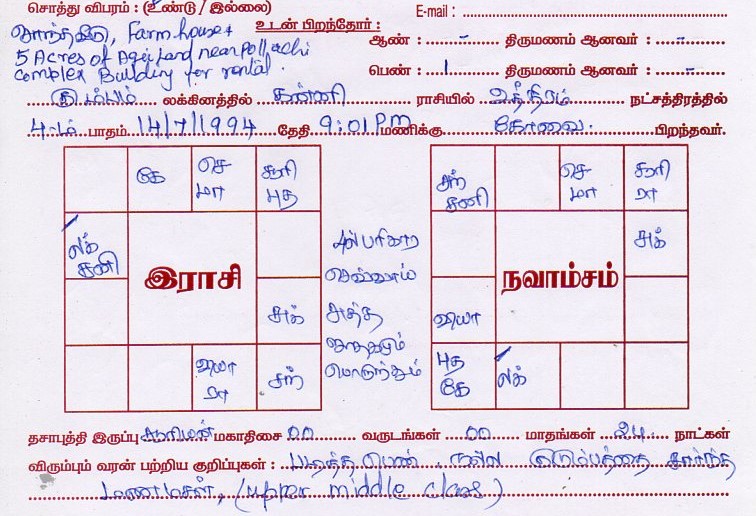 சொத்து விபரம் : (உண்டு / இல்லை)
E-mail :
சொந்தவீடு, Farm house +
5 Acres of Agri Land near Pollachi
Complex Building for rental.
உடன் பிறந்தோர் :
ஆண் : - திருமணம் ஆனவர் : -
பெண் : 1 திருமணம் ஆனவர் : -
கும்பம் லக்கினத்தில் கன்னி ராசியில் உத்திரம் நட்சத்திரத்தில்
4-ம் பாதம் 14/7/1994 தேதி 9:01 PM மணிக்கு கோவை. பிறந்தவர்.
கே
செ
மா
சூரி
புத
லக்
சனி
இராசி
சுக்
வியா
ரா
சந்
பரிகார
செவ்வாய்
சுத்த
ஜாதகமும்
பொருந்தும்
சந்
சனி
செ
மா
சூரி
ரா
சுக்
நவாம்சம்
வியா
புத
கே
லக்
தசாபுத்தி இருப்பு சூரியன் மகாதிசை 00 வருடங்கள் 00 மாதங்கள் 24 நாட்கள்
விரும்பும் வரன் பற்றிய குறிப்புகள் : படித்த பெண். நல்ல குடும்பத்தை சார்ந்த
மணமகள், (upper middle class)